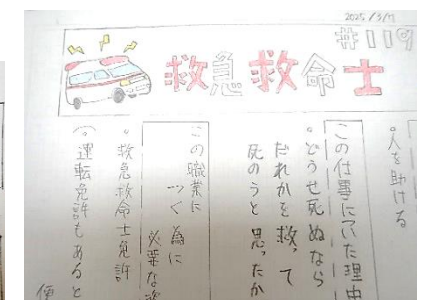 2025/3/7
#119
救急救命士
。人を助ける
この仕事についた理由
。どうせ死ぬなら
だれかを救って
死のうと思ったか
この職業に
つく為に
必要な
。救急救命士免許
(。運転免許もあると
便